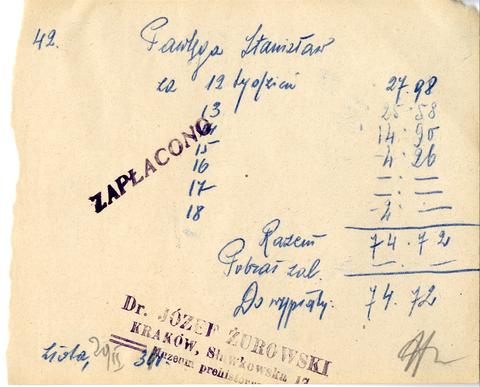 42. Pawłęga Stanisław
za 12 tydzień 27.98
13 25.58
14 14.90
15 4.26
16 —.—
17 —.—
18 2.—
Razem 74.72
Pobrał zal. —.—
Do wypłaty. 74.72
ZAPŁACONO
Dr. JÓZEF ŻUROWSKI
KRAKÓW, Sławkowska 17
Muzeum prehistor